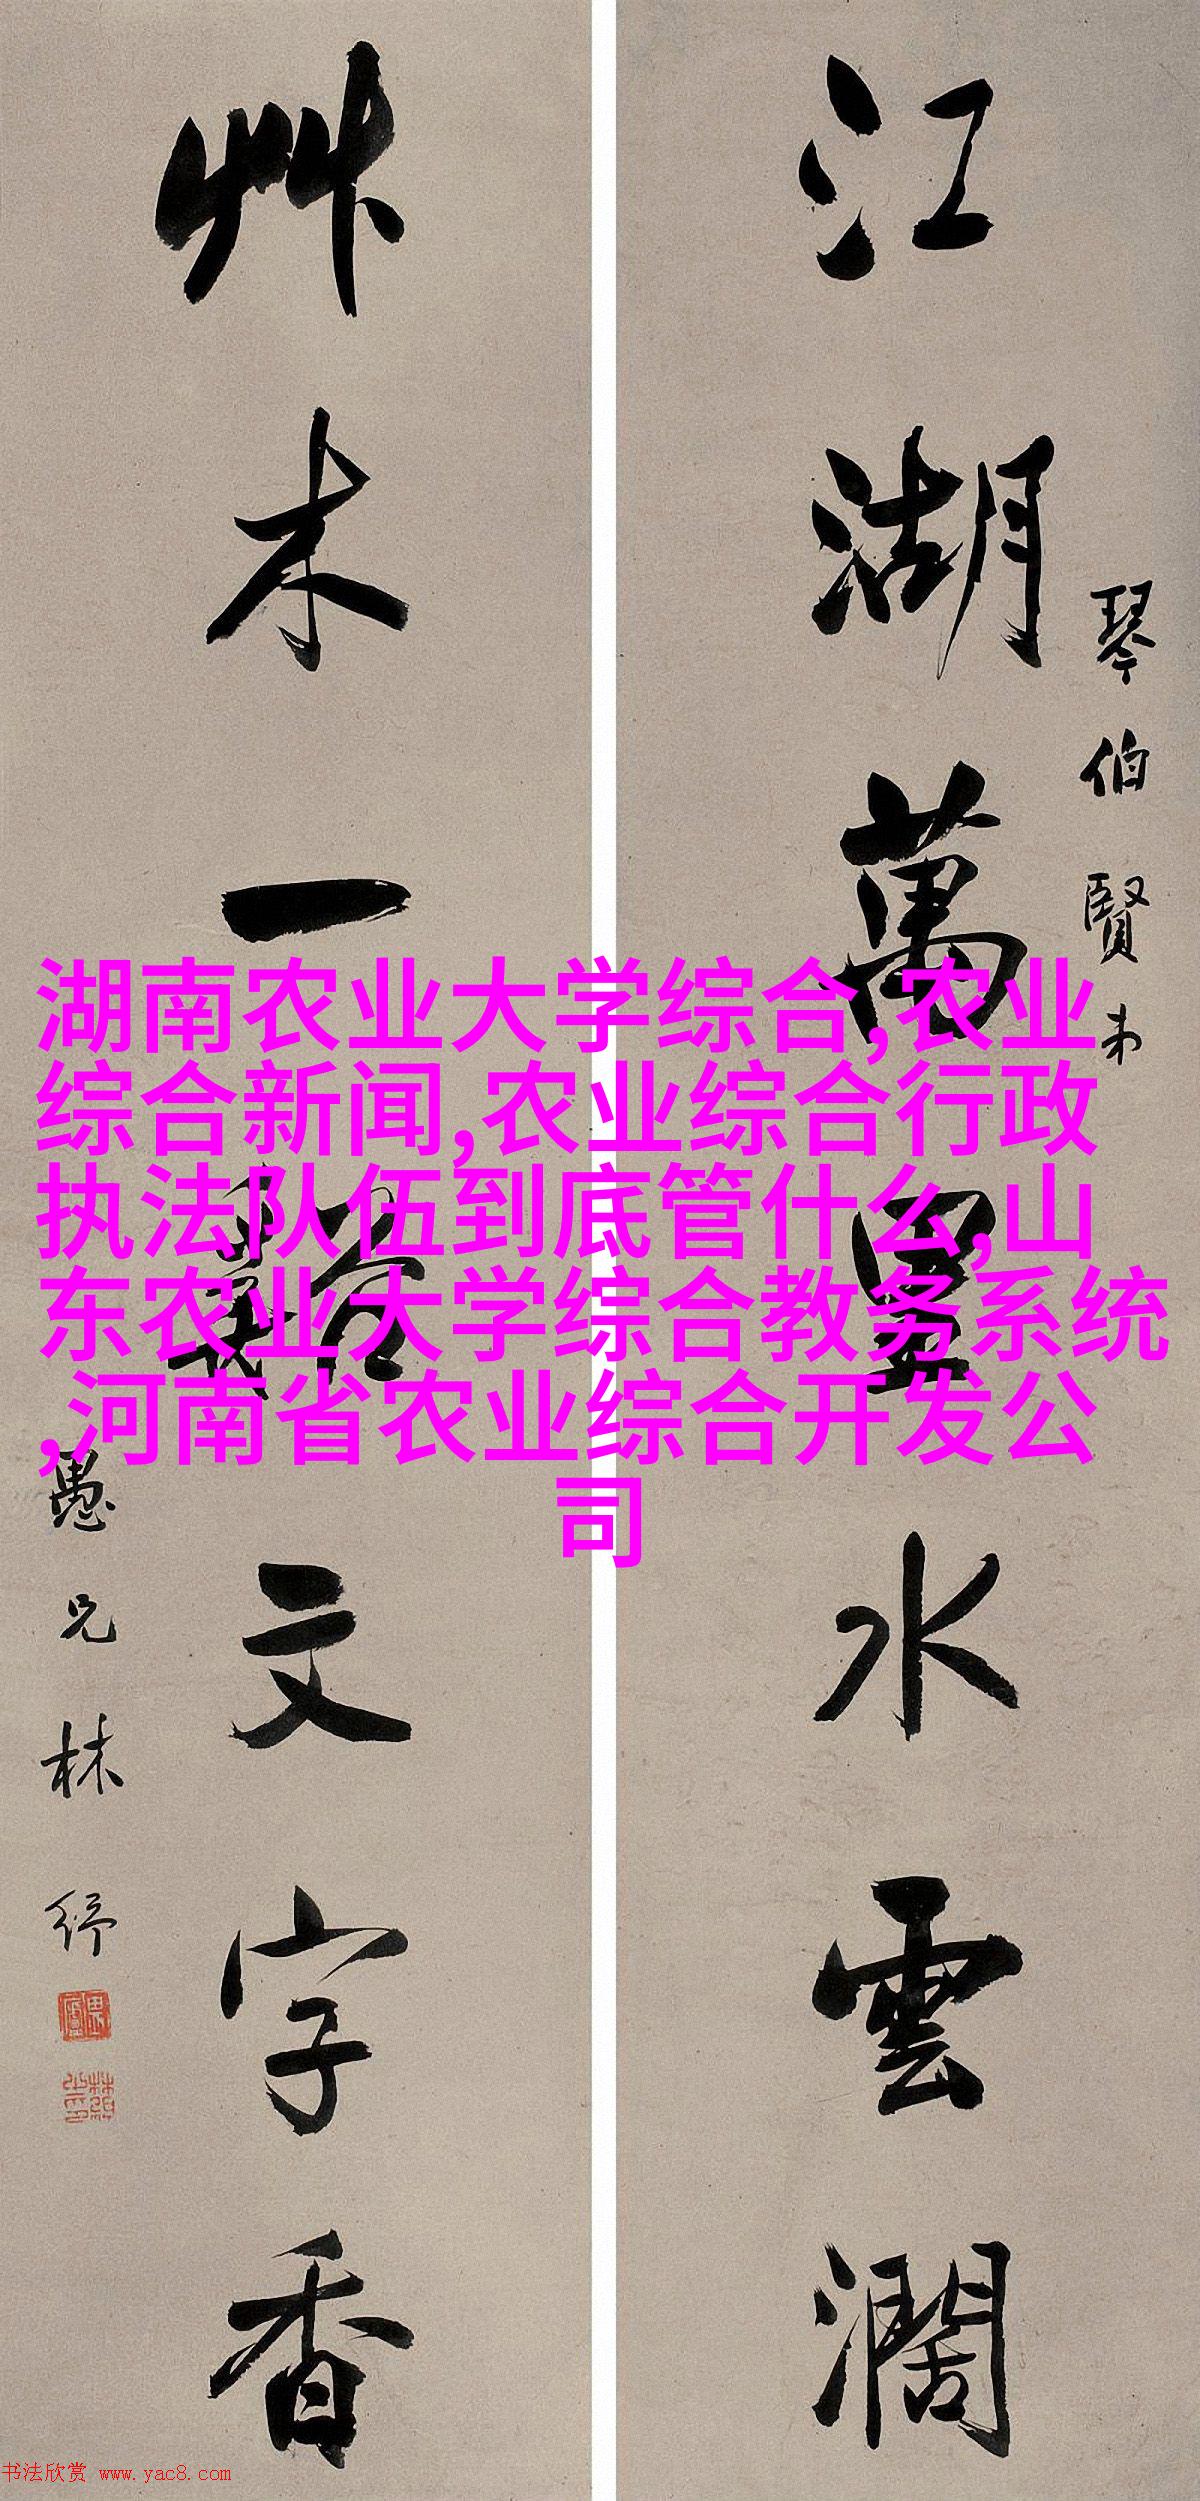 江湖萬里水雲濶
琴伯賢弟
艸木一谿文字香
愚兄林紓
湖南农业大学综合,农业
综合新闻,农业综合行政
执法队伍到底管什么,山
东农业大学综合教务系统
,河南省农业综合开发公
司
书法欣赏 www.yac8.com